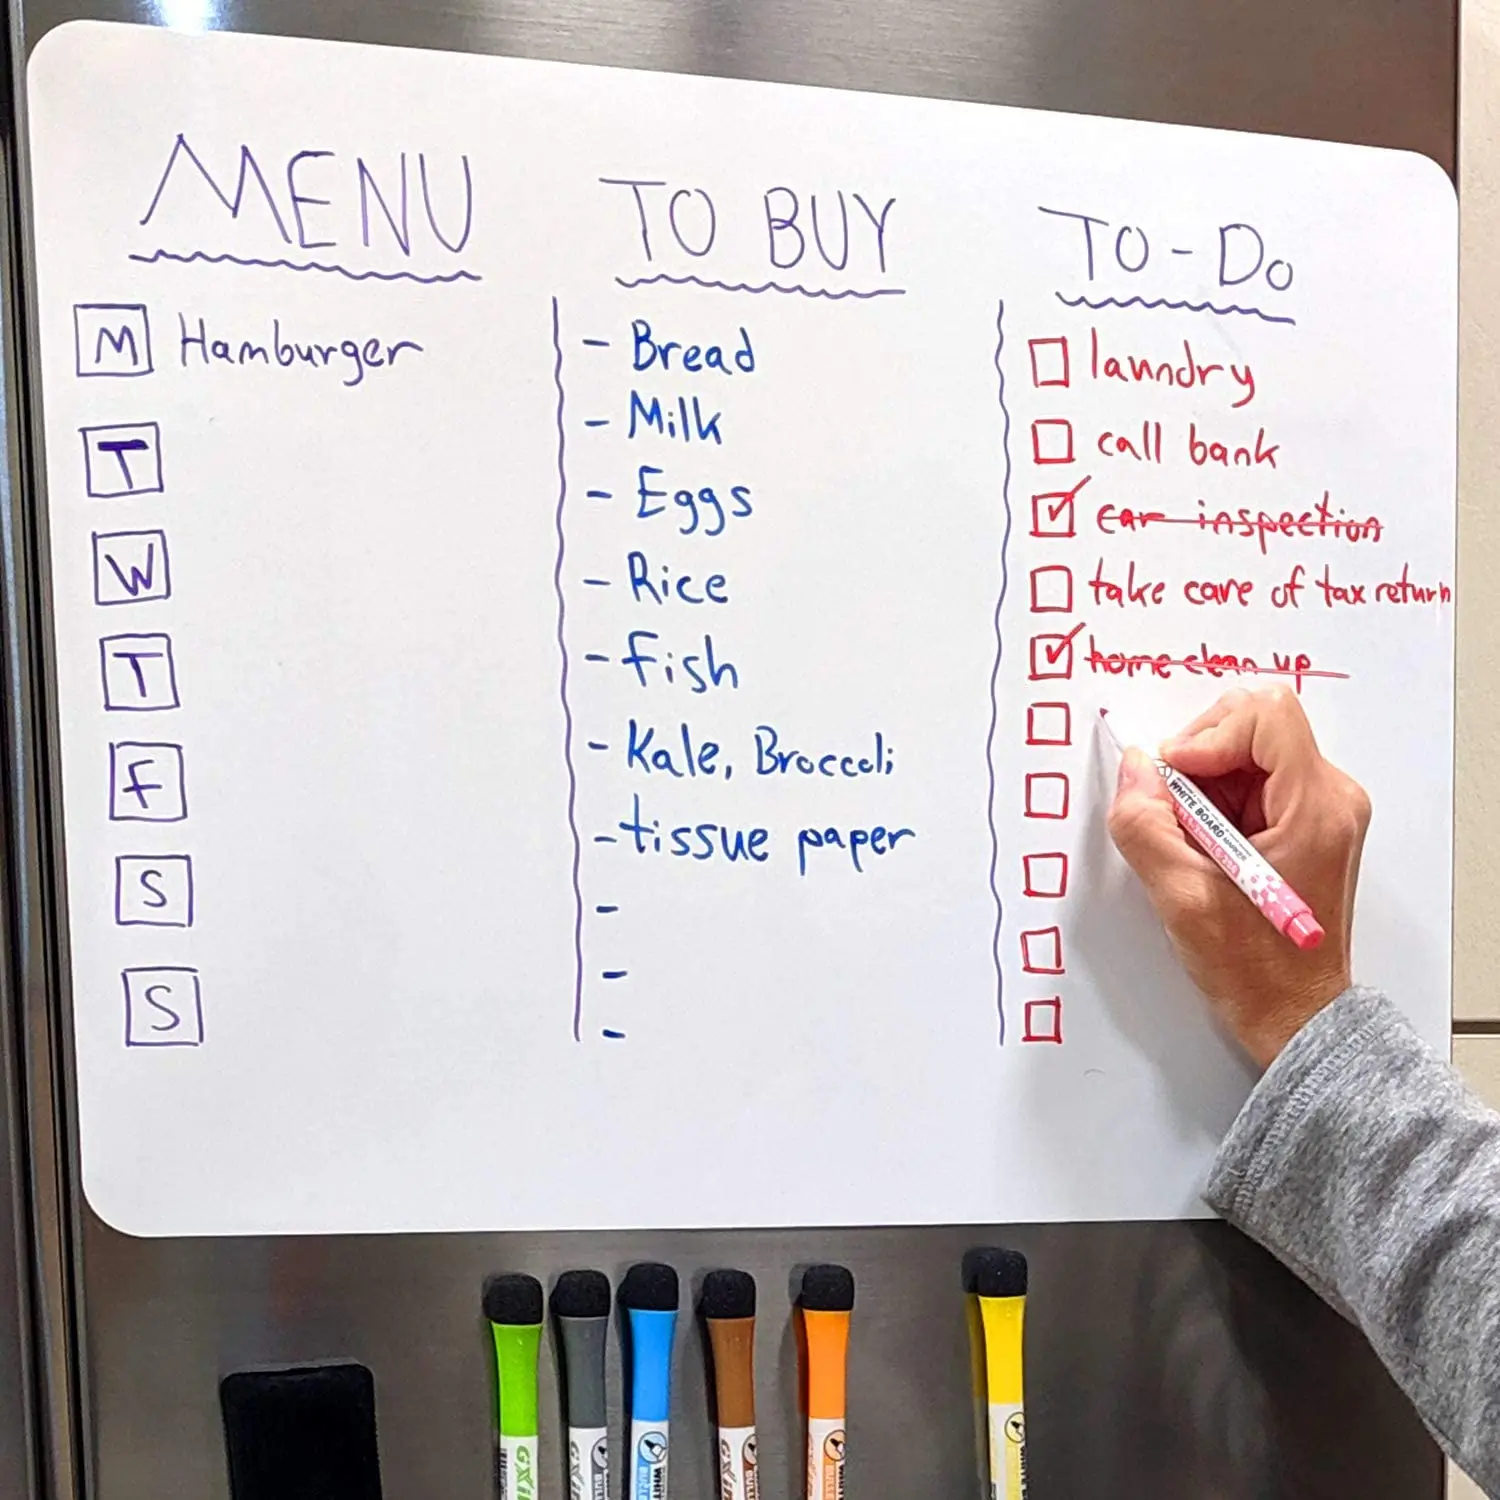 MENU
M Hamburger
T
W
T
F
S
S
TO BUY
- Bread
- Milk
- Eggs
- Rice
- Fish
- Kale, Broccoli
- tissue paper
-
-
-
TO-Do
laundry
call bank
car inspection
take care of tax return
home clean up
WHITE BOARD MARKER